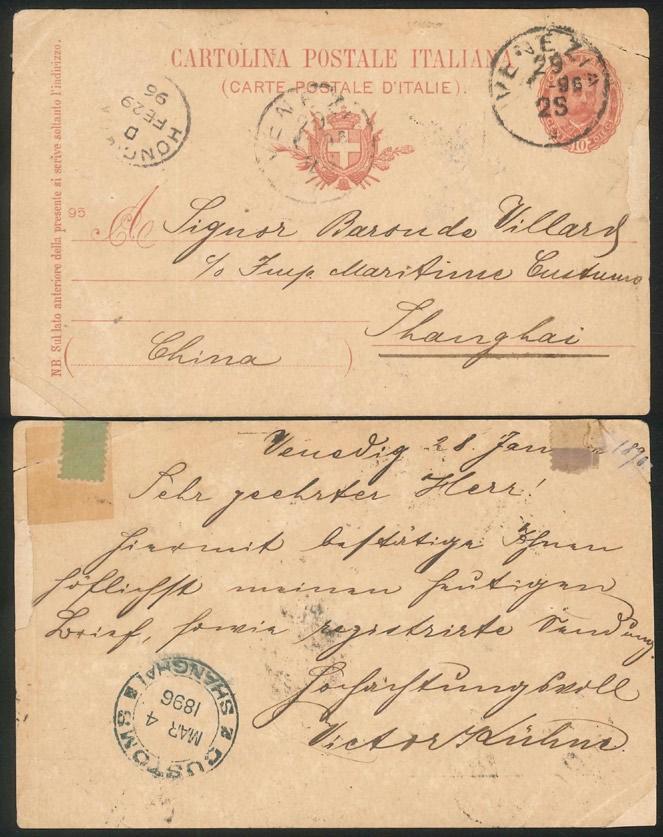 CARTOLINA POSTALE ITALIANA
(CARTE POSTALE D'ITALIE).
N.B. Sul lato anteriore della presente si scrive soltanto l'indirizzo.
HONG
D
FE 29
96
VENEZIA
VENEZIA
29
-96
2S
10
95
A Signor Baron de Villard
c/o Imp. Maritime Customs
Shanghai
(China)
Venedig 28. Jan
1896
Sehr geehrter Herr!
Hiermit bestätige Ihnen
höflichst meinen heutigen
Brief, sowie registrirte Sendung.
Hochachtungsvoll
Victor Kühne.
CUSTOMS
SHANGHAI
MAR 4
1896